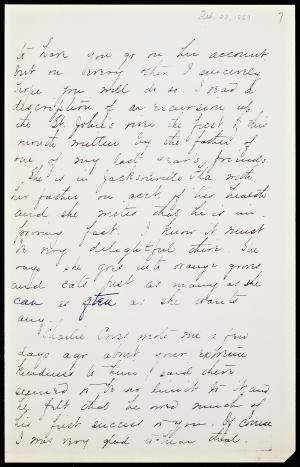 Feb. 27, 1869
7
to have you go on his account
but on every other I sincerely
hope you will do so. I read a
description of an excursion up
the St John's river the first of this
month written by the father of
one of my last year's friends.
She is in Jacksonville Fla. with
her father on acct. of his health
and she writes that he is im-
proving fast. I know it must
be very delightful there. She
says she goes into orange groves
and eats just as many as she
can as often as she wants
any.
Charlie Cross wrote me a few
days ago about your extreme
kindness to him, said there
seemed to be no limit to it and
he felt that he owed much of
his first success to you. Of course
I was very glad to hear that.